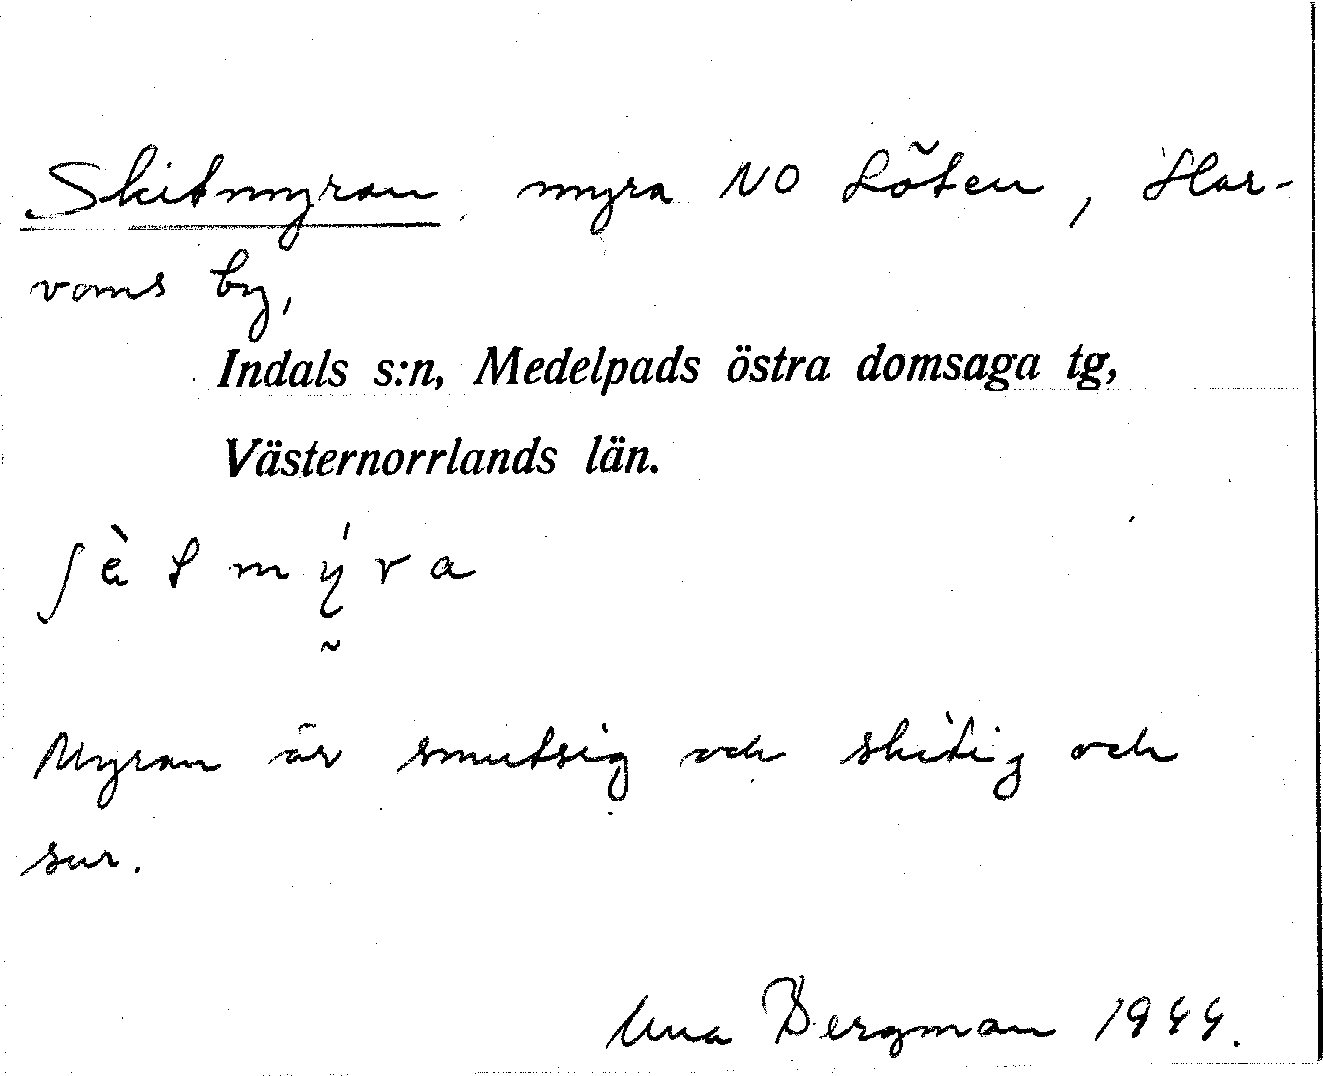 Skitmyran, myra NO Löten, Har-
voms by,
Indals s:n, Medelpads östra domsaga tg,
Västernorrlands län.
ʃè t m ý r a
Myran är smutsig och skitig och
sur.
Una Bergman 1944.